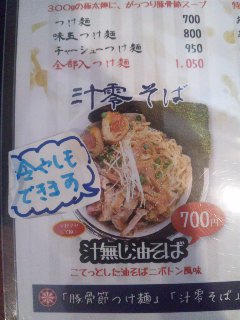 300gの極太麺に、がっつり豚骨節スープ
つけ麺 700
味玉つけ麺 800
チャーシューつけ麺 950
全部入つけ麺 1,050
汁零そば
冷やしも
できます
700円
汁無し油そば
こてっとした油そばニボトン風味
「豚骨節つけ麺」「汁零そば」